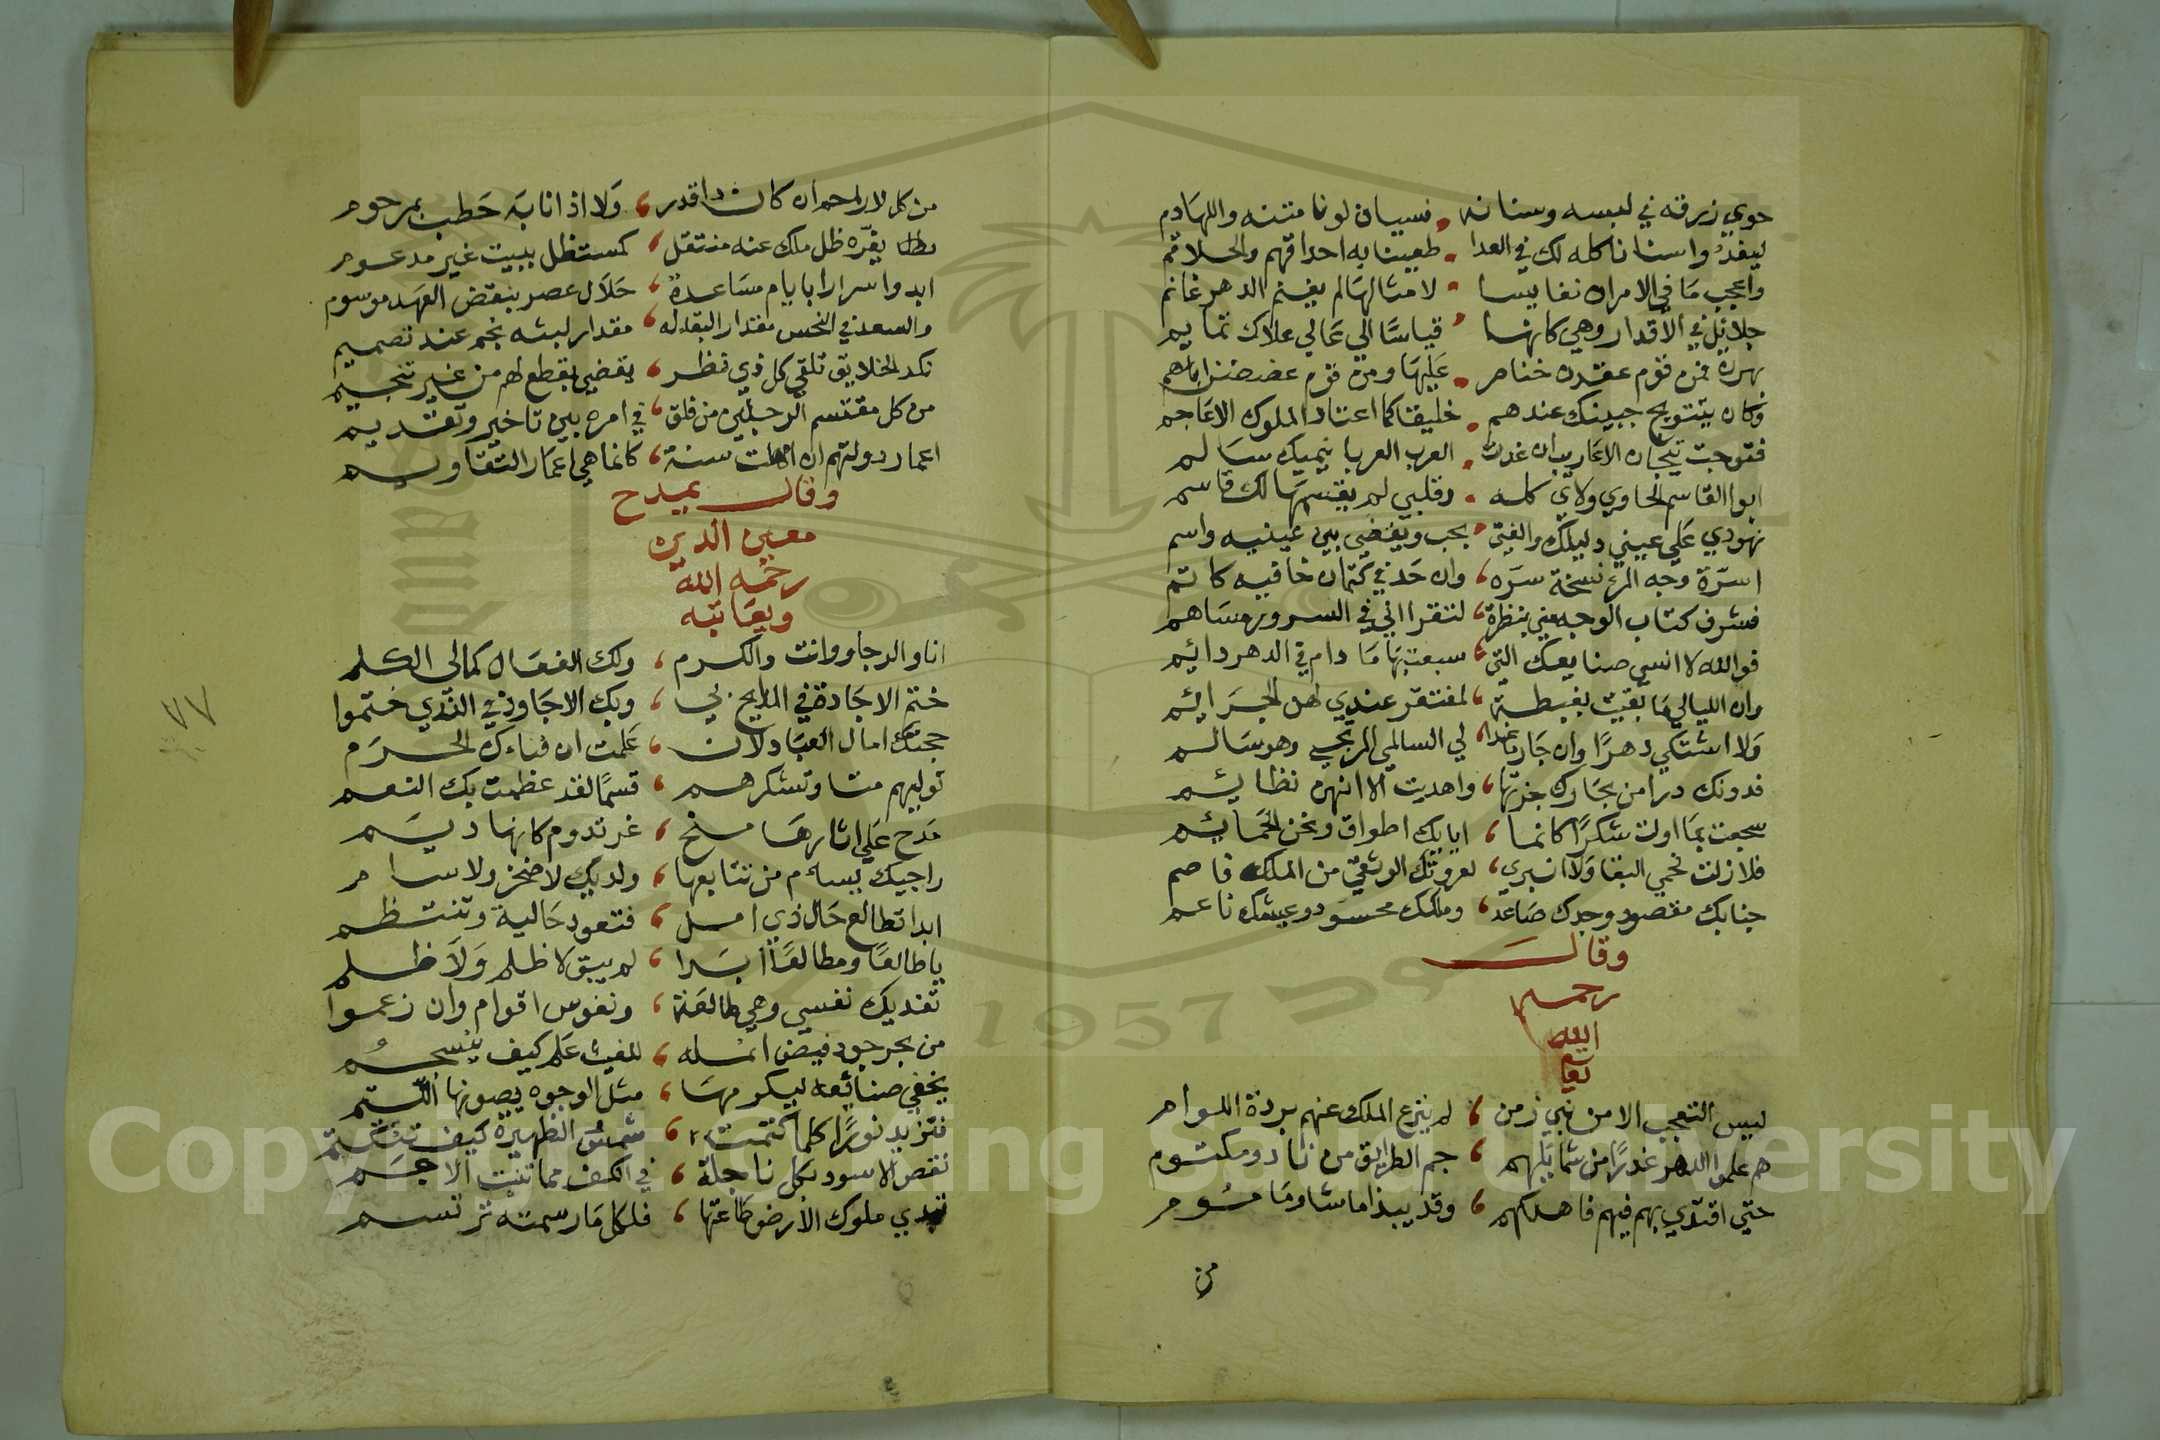 حوي زرقه في لبسه وسنانه . نسيان لونا متنه واللهادم
ليفدُ واسنانا كله لك في العدا . طعينا به احداقهم والحلاقم
واعجب مَا في الامران نفايسا . لا مثالها لم يغنم الدهر غانم
جلائل في الاقدار وهي كانها ، قياسًا الي عَالي علاك تمايم
فمن قوم عقدن خناصر . عَليهَا ومن قوم عضضن اباهم
وكان بتتويج جبينك عندهم . خليقا كما اعتاد الملوك الاعَاجم
فتوجت تيجان الاعَاريب ان غدت . العرب العربا ينميك سَالم
ابوا القاسم الحاوي ولاي كله . وقلبي لم يقسمهَا لك قاسم
عَلي عيني دليلك والفتي . بحب ويقضي بين عينيه واسم
اسرّة وجه المرء نسخة سرّه ، وان جَد في كتمان خافيه كاتم
فشرف كتاب الوجه مني بنظرة ، لتقرا اني في السرور مسَاهم
فوالله لا انسي صنايعك التي ، سبعت بهَا مَا دام في الدهر دائم
وان الليالي مَا بقيت بغبطة ، لمفتقر عندي لهن الجرَايم
وَلا اشتكي دهرًا وان جَار بَاغيا ، لي السالمي المرتجي وهو سَالم
فدونك درا من بحَارك جزتها ، واهديت الا انهن نظايم
سجعت بمَا اولت شكرًا كانما ، اياديك اطواق ونحن الحَمَايم
فلا زلت تحمي البقا وَلا انبري ، لعروتك الوثقي من الملك فاصم
جنابك مقصود وجدك صَاعد ، وملكك محسود وعيشك ناعم
وقالَ
رحمه
الله
تعا
ليس التعجب الا من بني زمن ، لم ينزع الملك عنهم بردة اللوام
هم علموا الدهر غدرًا من شمايلهم ، جم الطرايق من باد ومكتوم
حتي اقتدي بهم فيهم فاهلكهم ، وقد يبذ اماشاوَمَا مشوم
من
من كل لا يرحم ان كان ذا قدر ، وَلا اذا نابَه حَطب بمرحوم
يظل يغرّه ظل ملك عنه منتقل ، كمستظل ببيت غير مدعوم
ابدوا سرارا بايام مسَاعدة ، خلال عصر بنقض العهَد موسوم
والسعد في النحس مقدار البقاء له ، مقدار لبثه نجم عند تصميم
نكد الخلايق تلقي كل ذي نظر ، يقضي بقطع لهم من غير تنجيم
من كل مقتسم الرجلين من قلق ، في امره بين تاخير وتقديم
اعمار دولتهم ان اكملت سنة ، كانما هي اعمَار التقاويم
وقال يمدح
معين الدين
رحمه الله
ويعَاتبه
انا والرجا ووانت والكرم ، ولك الفعَال كما لي الكلم
ختم الاجَادة في المدايح بي ، وبك الاجَاوذ في النّدي ختموا
حجتك امال العبَاد لان ، عَلمت ان فناءك الحرَم
توليهم متا وتشكرهم ، قسمًا لقد عظمت بك النعم
مَدح عَلي اثارهَا منح ، غر تدوم كانها ديَم
راجيك يسام من تتابعها ، ولديك لا ضجز ولا سام
ابدا تطالع حَال ذي امل ، فتعود حَالية وتنتظم
يا طالعًا ومطالعًا ابَدا ، لم يبق لا ظلم وَلا ظلم
تفديك نفسي وهي طالعَنة ، ونفوس اقوام وان زعموا
من بحر جود فيض انمله ، للغيث عَلم كيف ينسجمُ
يخفي صنائعه ليكرمهَا ، مثل الوجوه يصونها اللثم
فتزيد نورًا كلما كتمت ، شمسُ الظهيرة كيف تنكتم
نقص الاسود بكل ناجلة ، في الكف مما تنبت الاجَم
تبدي ملوك الارض طاعتهَا ، فلكل مَا رسمته ترتسم
٧٧